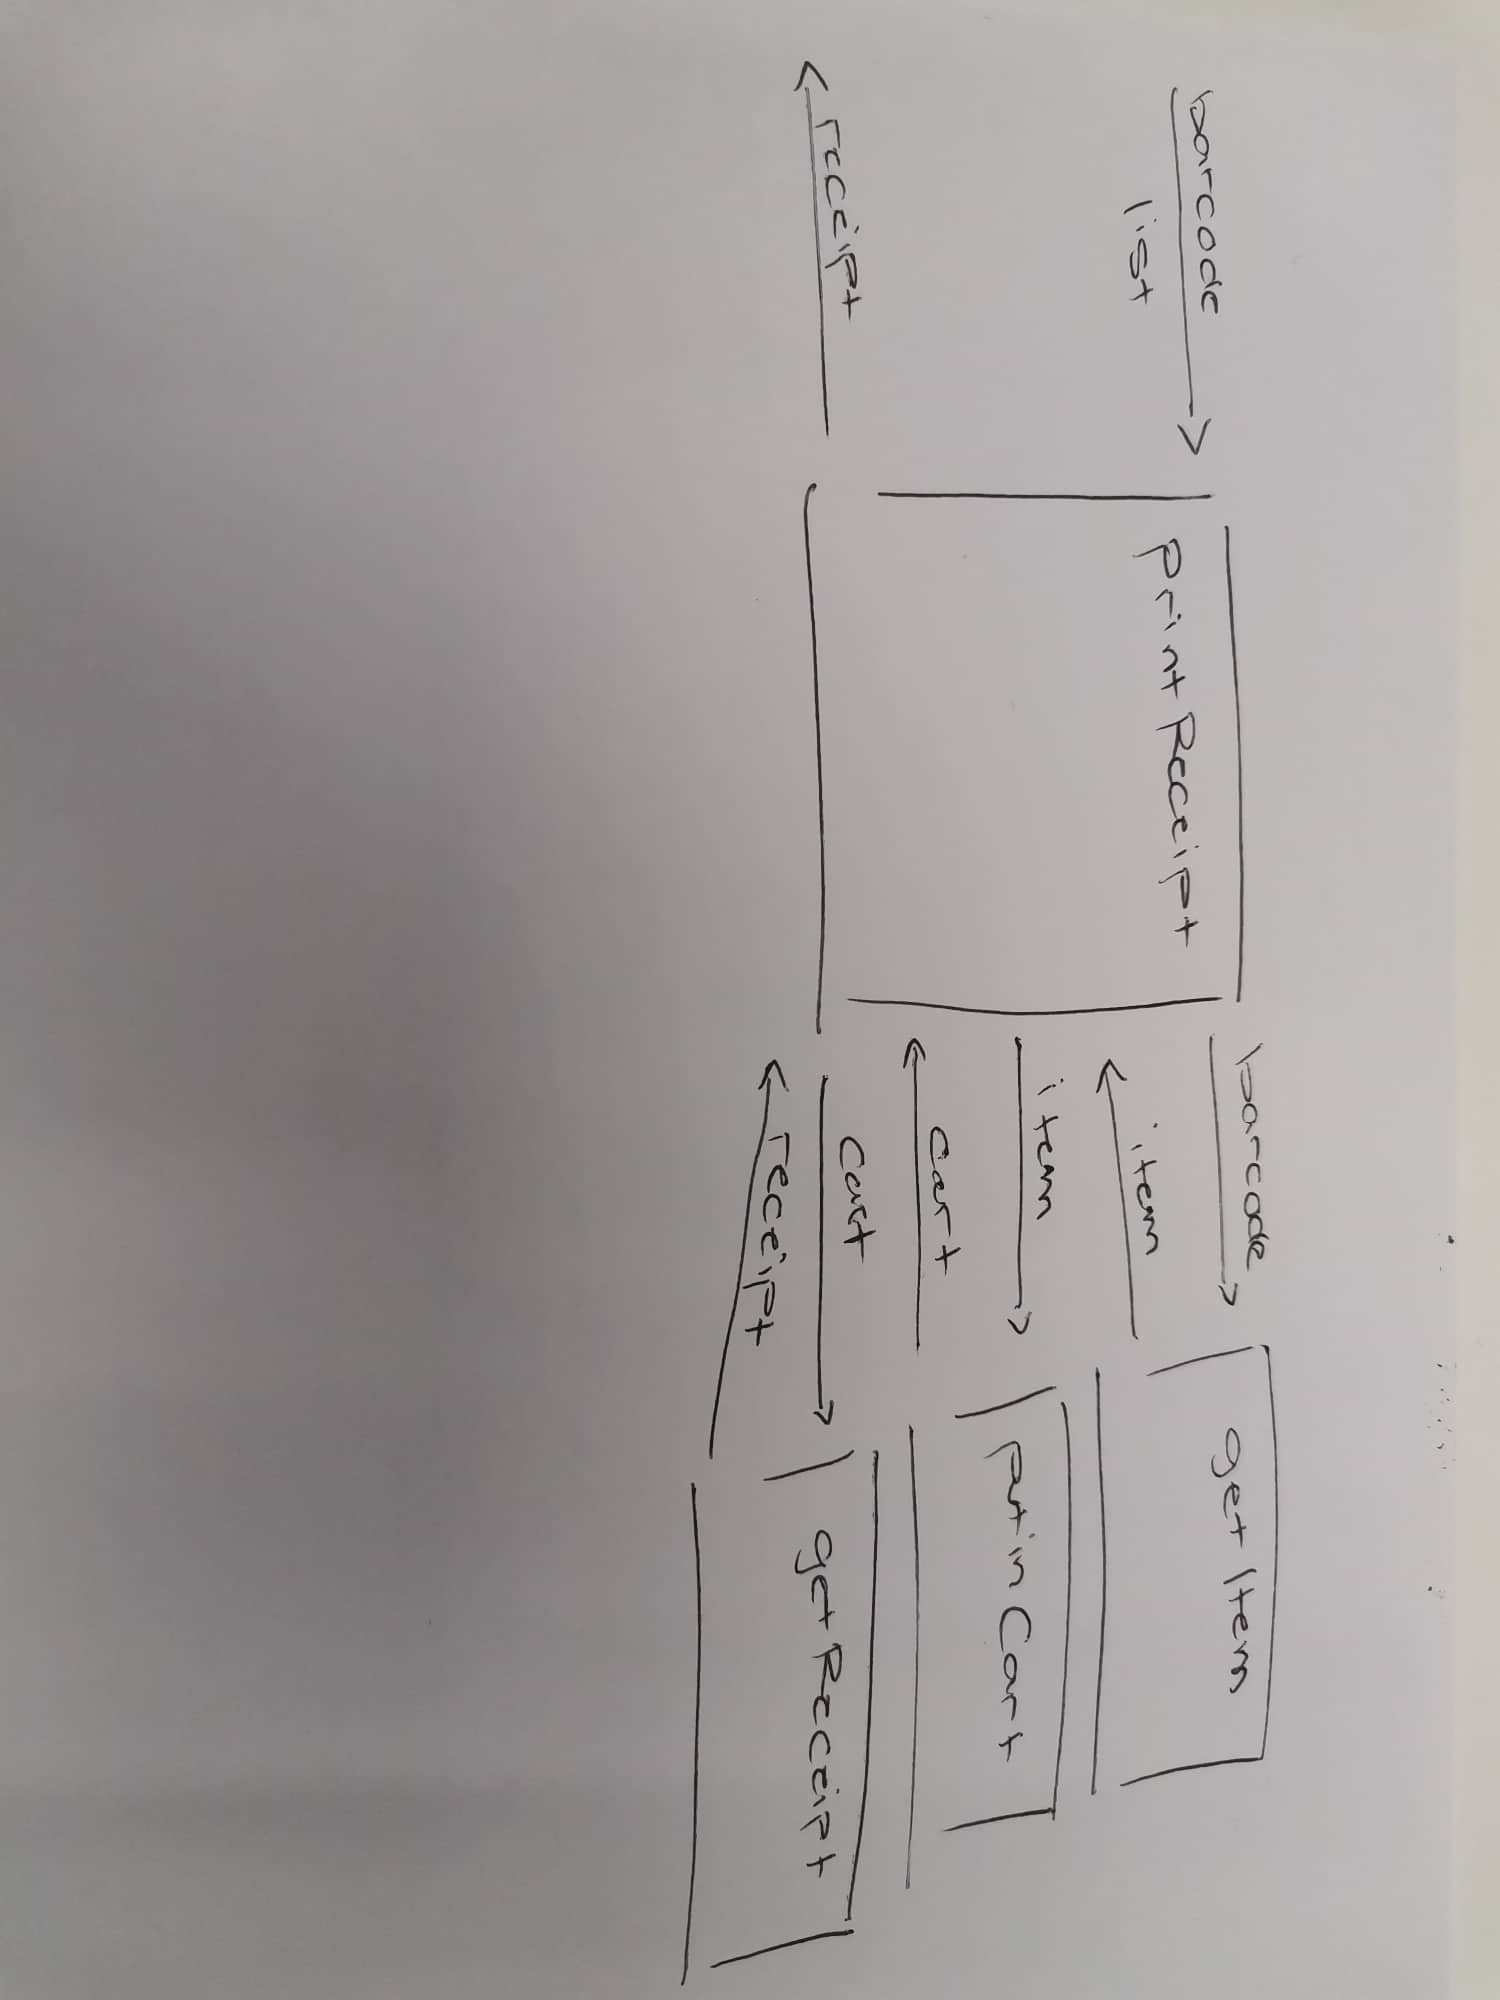 barcode
list
receipt
printReceipt
barcode
item
item
cart
cart
receipt
getItem
putinCart
getReceipt